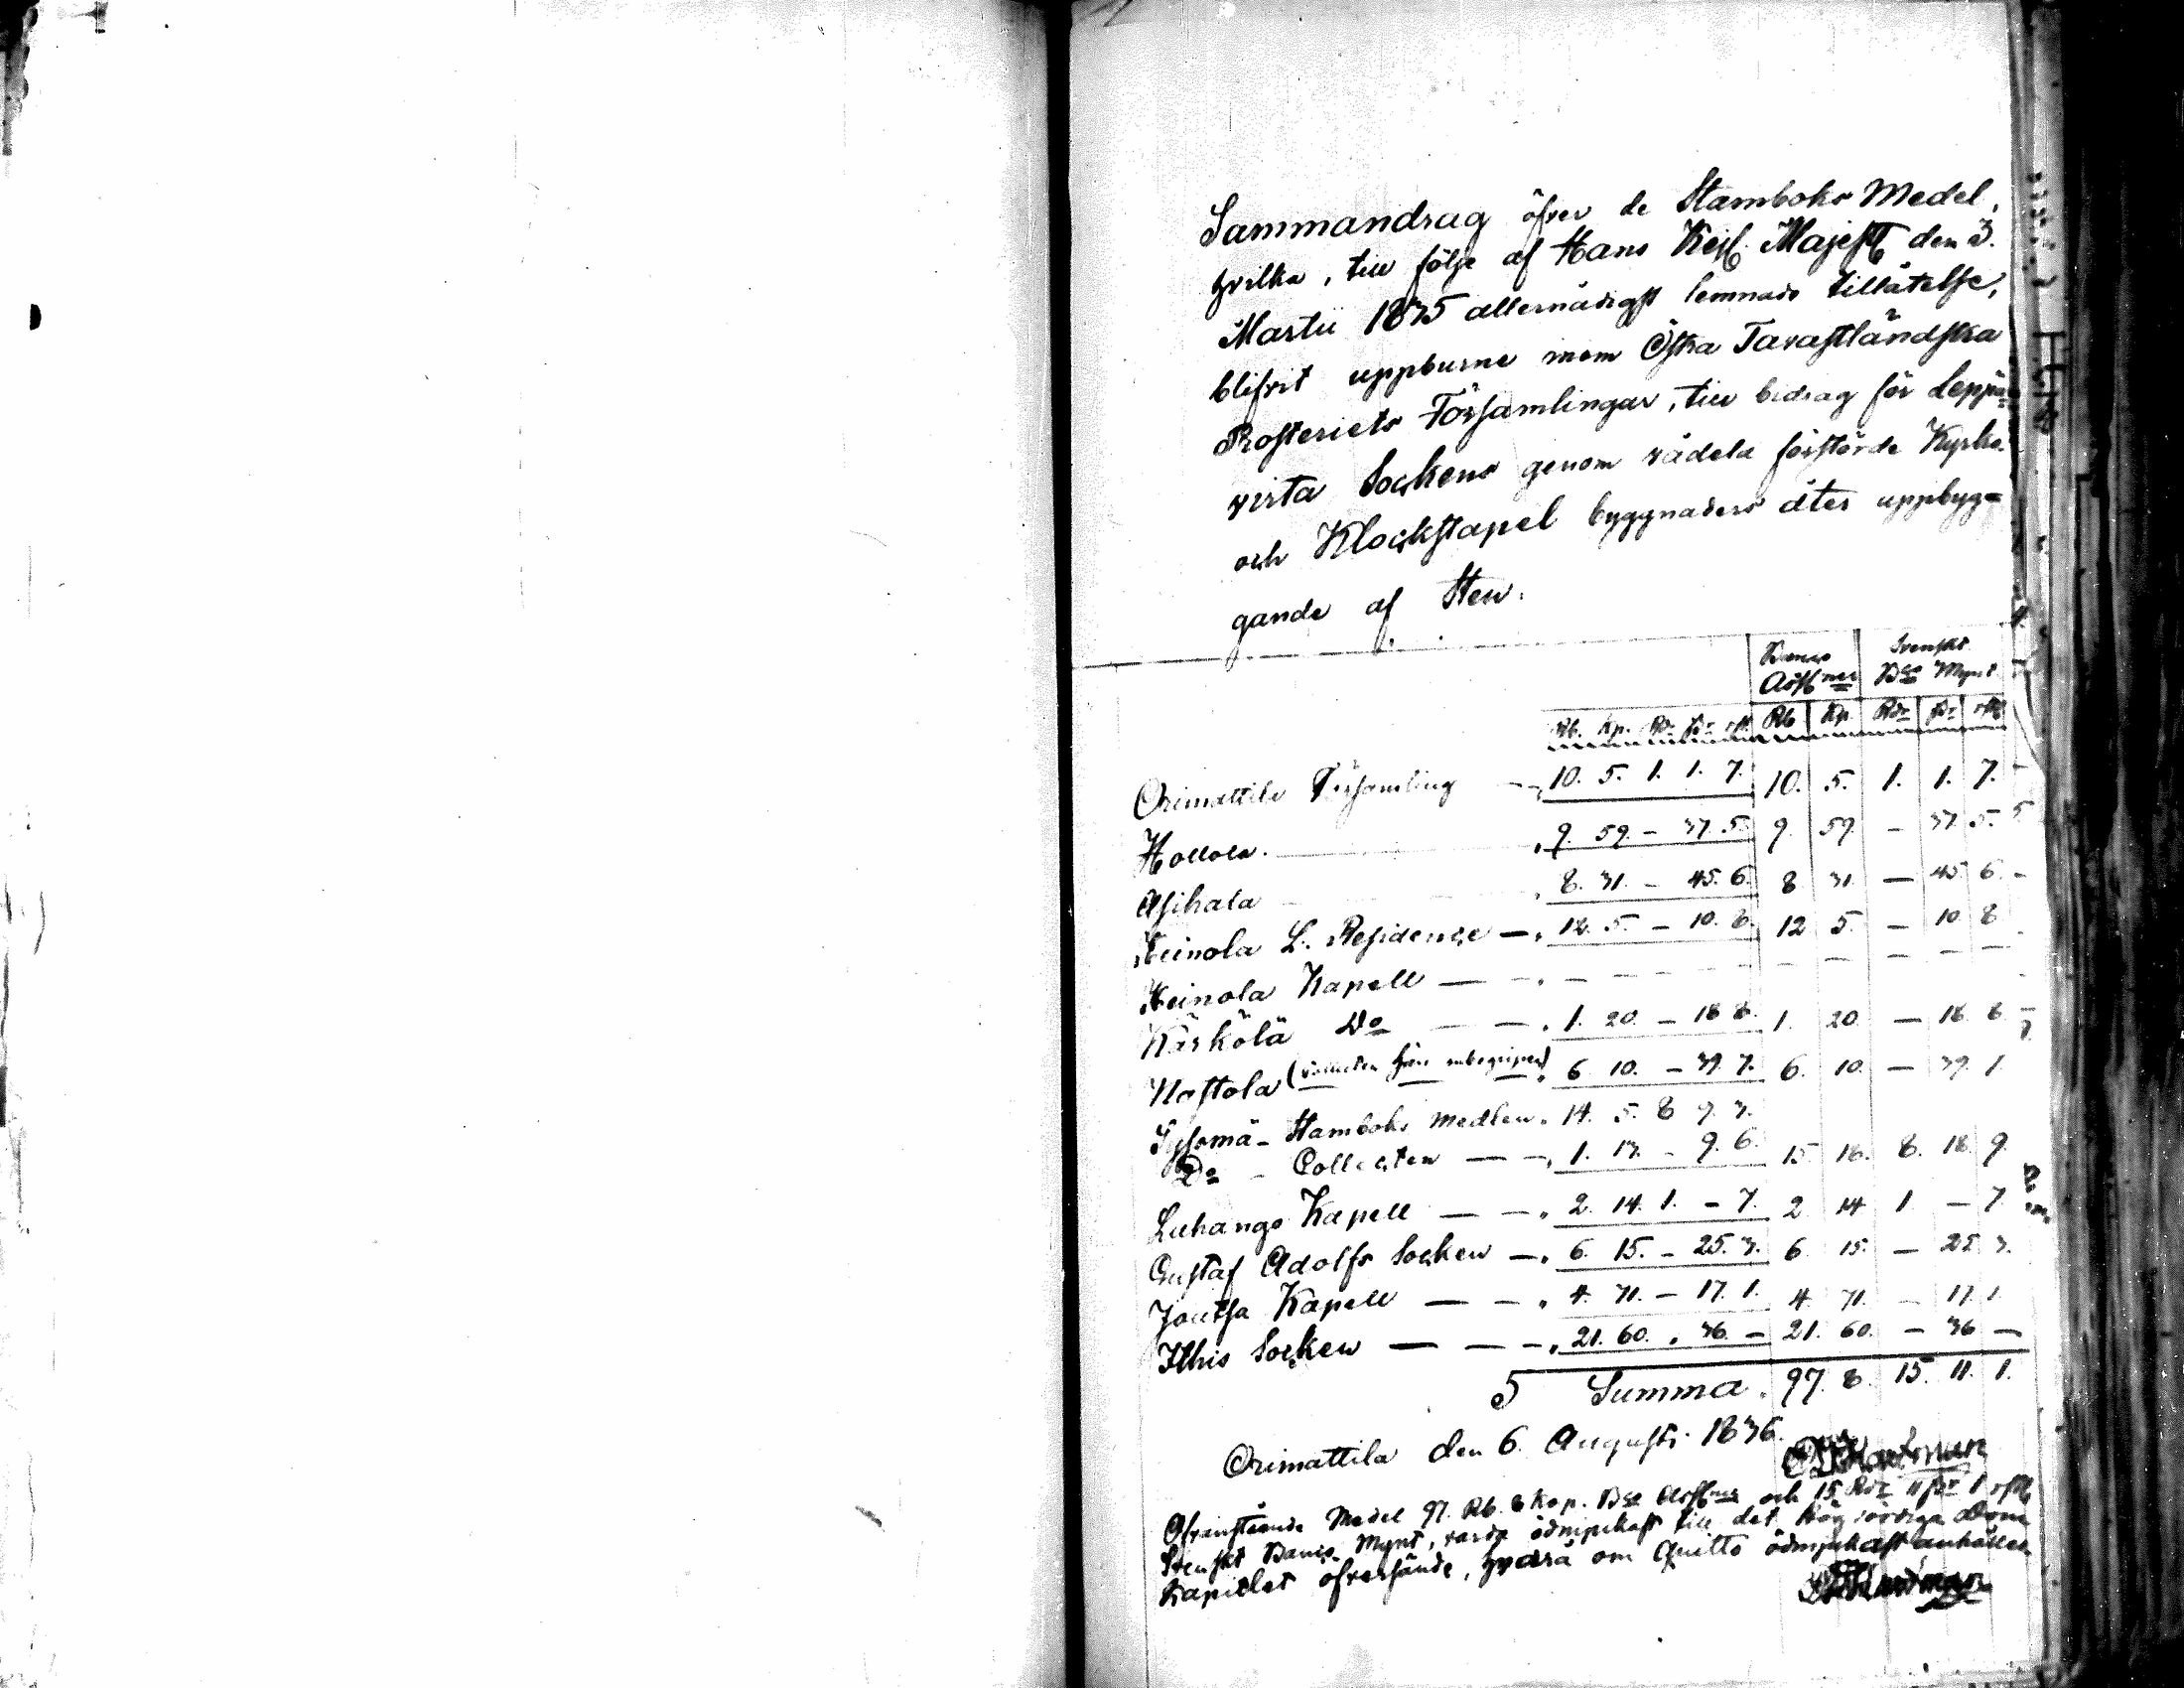 Sammandrag öfver de Stamboks Medel,
hvilka, till följe af Hans Kejs. Majest. den 3.
Martii 1835 allernådigst lemnade tillåtelse,
blifvit uppburne inom Östra Tavastländska
Prosteriets Församlingar, till bidrag för Leppä-
virta Sockens genom vådeld förstörde Kyrko-
och Klockstapel byggnaders åter uppbyg-
gande af Sten.
Banco Ass:ner Svenskt B:co Mynt
Rb. Kp. Rd. sk. rst. Rb Kp. Rdr sk. rst.
Orimattila Församling — 10. 5. 1. 1. 7. 10. 5. 1. 1. 7.
Hollola. 9. 59. — 37. 5. 9. 59. — 37. 5.
Asikala 8. 31. — 45. 6. 8 31. — 45. 6.
Heinola L. Residence — 12. 5. — 10. 8. 12 5. — 10. 8
Heinola Kapell — — — — — —
Kärkölä Do — — 1. 20. — 18 8. 1. 20. — 18. 8.
Nastola ( här inbegripen) 6 10. — 39. 7. 6. 10. — 39.
Sysmä - Stamboks Medlen. 14. 5. 8 9. 3.
Do - Collecten — — 1. 13. — 9. 6. 15 18. 8. 18. 9.
Luhango Kapell — — 2. 14. 1. — 7. 2 14 1 — 7.
Gustaf Adolfs Socken — 6. 15. — 25. 3. 6. 15. — 25 3.
Joutsa Kapell — — 4. 71. — 17. 1. 4. 71. — 17. 1.
Ithis Socken — — — 21. 60. 36. — 21. 60. — 36 —
Summa. 97. 8. 15. 11. 1.
Orimattila den 6. Augusti 1836.
Hartman
Ofvanstående Medel 97. Rb. 8 Kop. B:co Ass:ner och 15 Rdr 11 sk. 1 rst.
Svenskt Banco Mynt, varda ödmjukast till det Högvördiga Dom
Kapitlet öfversände, hvarå om Quitto ödmjukast anhålles
Hartman